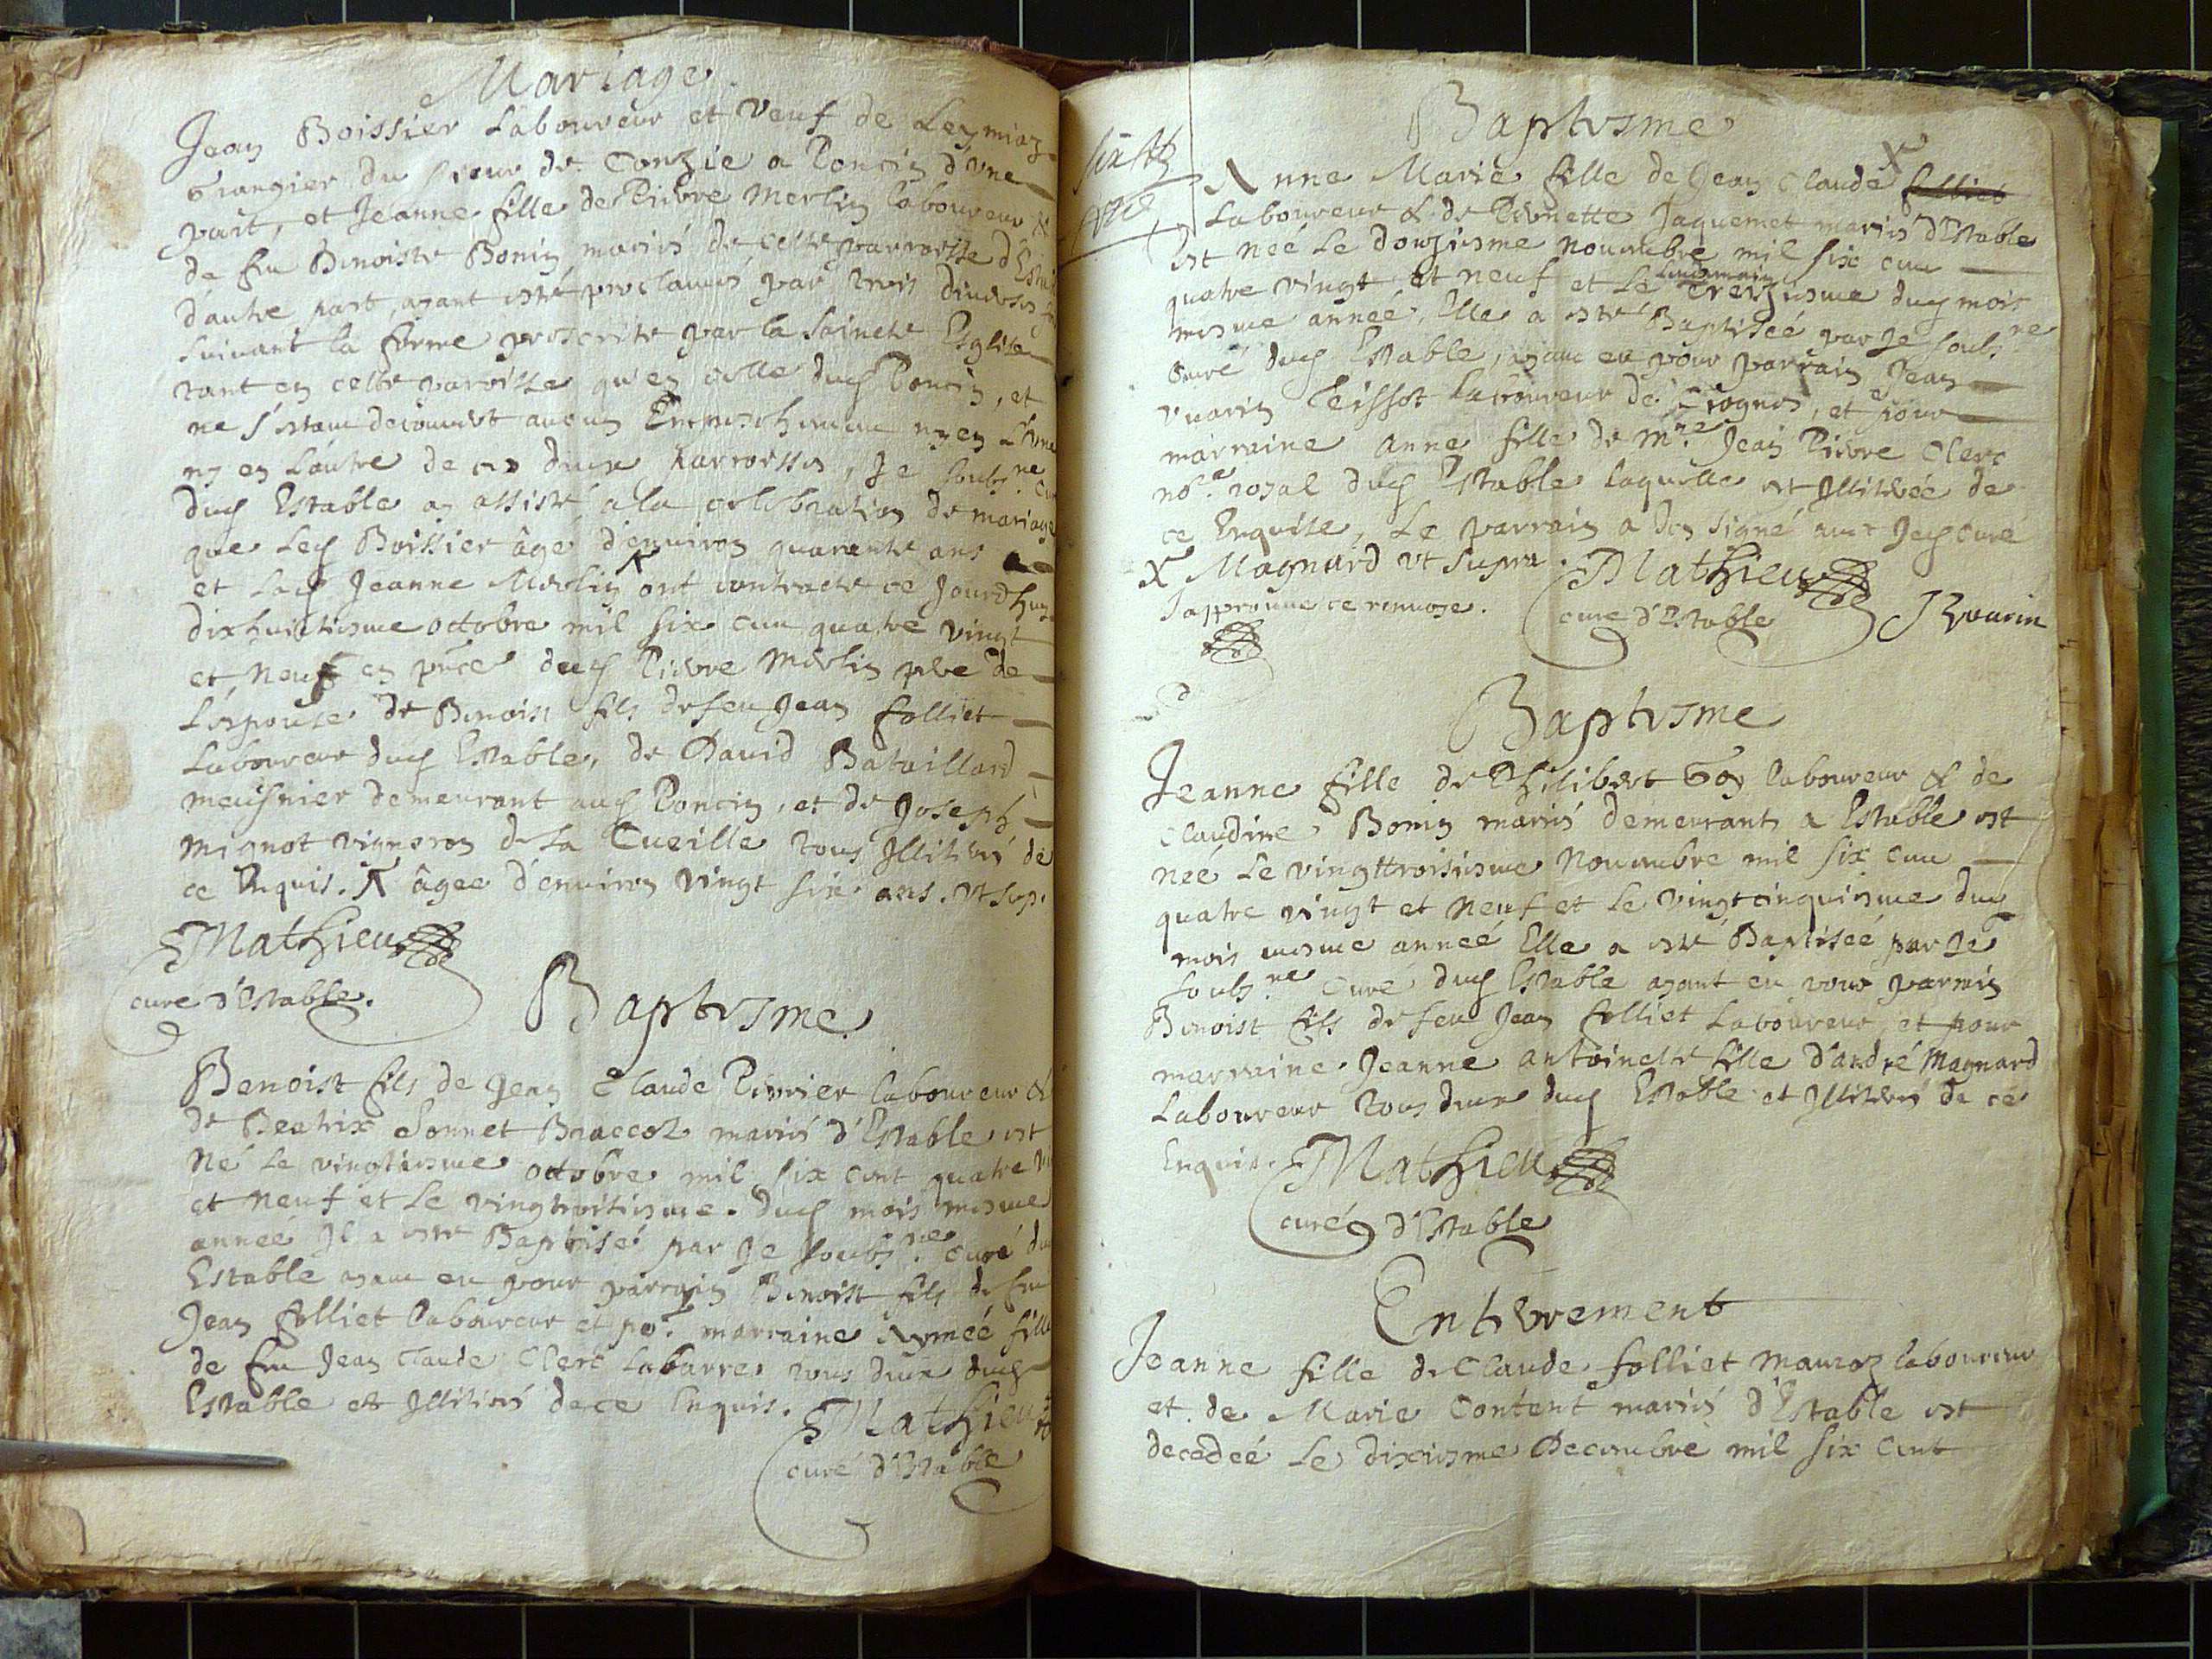 Mariage
Jean Boissier Laboureur et veuf de Leymiaz
Grangier du sieur de Conzie a Poncin d'une
part, et Jeanne fille de Pierre Merlin laboureur &
de feu Benoiste Bonin mariés de cette parroisse d'Estable
d'autre part, ayant esté proclamés par trois diverses
suivant la forme prescrite par la saincte Esglise
tant en cette paroisse qu'en celle dud Poncin, et
ne s'estant decouvert aucun Empeschement ny en l'une
ny en L'autre de ces deux parroisses, Je soubs.né
dud Estable ay assisté a la celebration de mariage
que Led Boissier âgé d'environ quarante ans
et lad Jeanne Merlin X ont contracté ce Jourdhuy
dixhuictiesme octobre mil six cens quatre vingt
et neuf en pnce dud Pierre Merlin pere de
L'espouse de Benoist fils de feu Jean folliet
Laboureur dud Estable, de David Bataillard
meusnier demeurant aud Poncin, et de Joseph
mignot vigneron de La Cueille tous Illiterés de
ce Enquis. X âgee d'environ vingt six ans. Vt sup.
Mathieu
curé d'Estable.
Baptesme
Benoist fils de Jean Claude Perrier laboureur &
de Beatrix Sonnet Braccoz mariés d'Estable est
né Le vingtiesme octobre mil six cent quatre
et neuf et Le vingtroisiesme dud mois mesme
année Il a esté Baptisé par Je soubs.né Curé
Estable ayant eu pour parrain Benoist fils de feu
Jean folliet laboureur et po.r marraine Aymeé fille
de feu Jean Claude Clerc Labarre tous deux dud
Estable et Illiterés de ce Enquis.
Mathieu
curé d'Estable
Baptesme
Anne Marie fille de Jean Claude X folliet
Laboureur & de Pernette Jaquemet mariés d'Estable
est neé Le douziesme novembre mil six cens
quatre vingt et neuf et Le Lendemain Treiziesme dud mois
mesme anneé, Elle a esté Baptiseé par Je soubs.né
Curé dud Estable, ayant eu pour parrain Jean
vuarin Teissot laboureur de, et pour
marraine Anne fille de M.re Jean Pierre Clerc
no.re royal dud Estable laquelle est Illitereé de
ce Enquise, Le parrain a signé avec Jed curé
X Magnard vt supra.
J'approuve ce renvoye.
Mathieu
curé d'Estable
J Vuarin
Baptesme
Jeanne fille de Philibert Goy laboureur & de
Claudine Bonin mariés demeurants a Estable est
neé Le vingttroisiesme Novembre mil six cens
quatre vingt et neuf et Le vingtcinquiesme dud
mois mesme anneé Elle a esté Baptiseé par Je
soubs.né Curé dud Estable ayant eu pour parrain
Benoist fils de feu Jean folliet Laboureur, et pour
marraine Jeanne antoinette fille d'andré Magnard
Laboureur tous deux dud Estable et Illiterés de ce
Enquis.
Mathieu
curé d'Estable
Enterrement
Jeanne fille de Claude folliet Mauroz laboureur
et de Marie Content mariés d'Estable est
decedeé Le dixiesme Decembre mil six cent